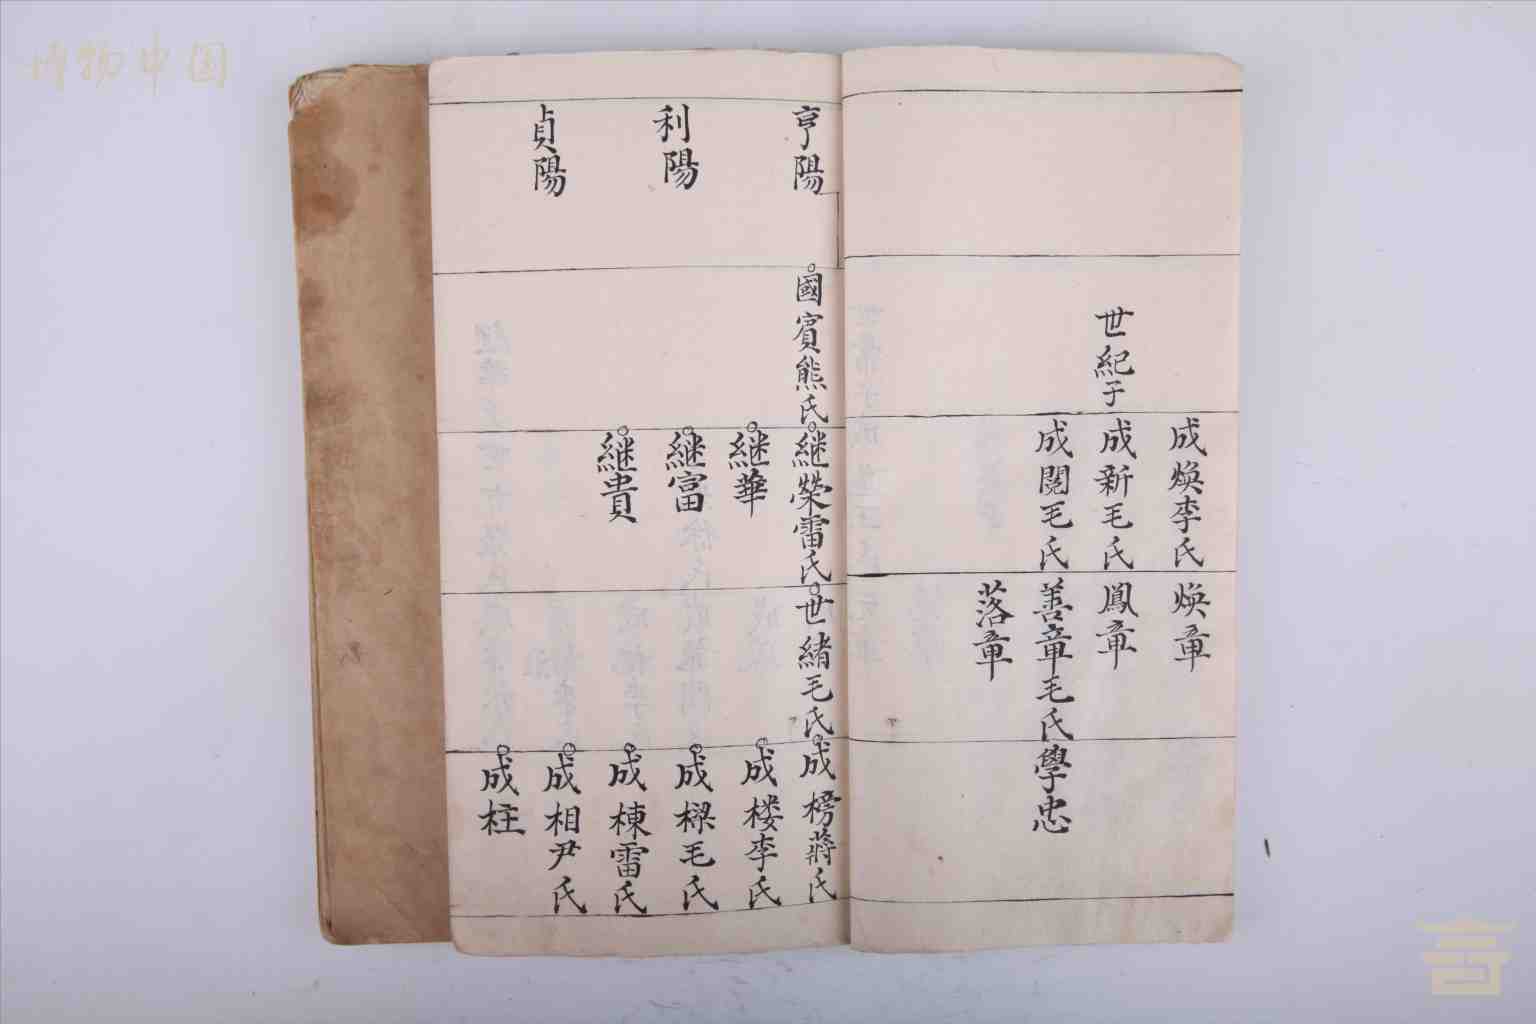 世紀子
成煥李氏
成新毛氏
成閱毛氏
煥章
鳳章
善章毛氏
落章
學忠
亨陽
利陽
貞陽
國賓熊氏
継榮雷氏
継華
継富
継貴
世緒毛氏
成榜蔣氏
成楼李氏
成樑毛氏
成棟雷氏
成相尹氏
成柱
博物中国